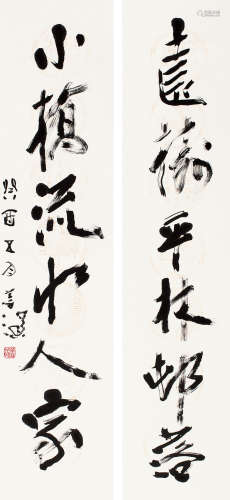 遠平林邨落
小橋流水人家
癸酉五月